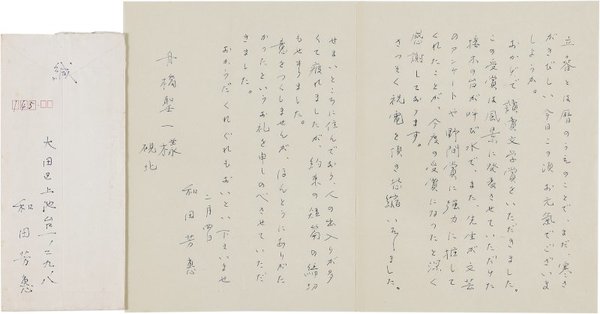 立春とは暦のうえのことで、まだ、寒さ
がきびしい今日この頃お元気でございま
しょうか。
おかげで読売文学賞をいただきました。
この受賞は風景に発表させていただけた
接木の台が呼び水で、また、先生が文芸
のアンケートや野間賞に強力に推して
くれたことが、今度の受賞になったと深く
感謝しております。
さっそく祝電を頂き恐縮いたしました。
せまいところに住んでおり、人の出入りが多
くて疲れましたが、約束の短篇の締切
もせまりました。
意をつくしませんが、ほんとうにありがた
かったというお礼を申しのべさせていただ
きました。
おからだくれぐれもおいとい下さいませ
二月四日
和田芳惠
舟橋聖一様
硯北
緘
145
大田区上池台一ノ二九ノ八
和田芳惠